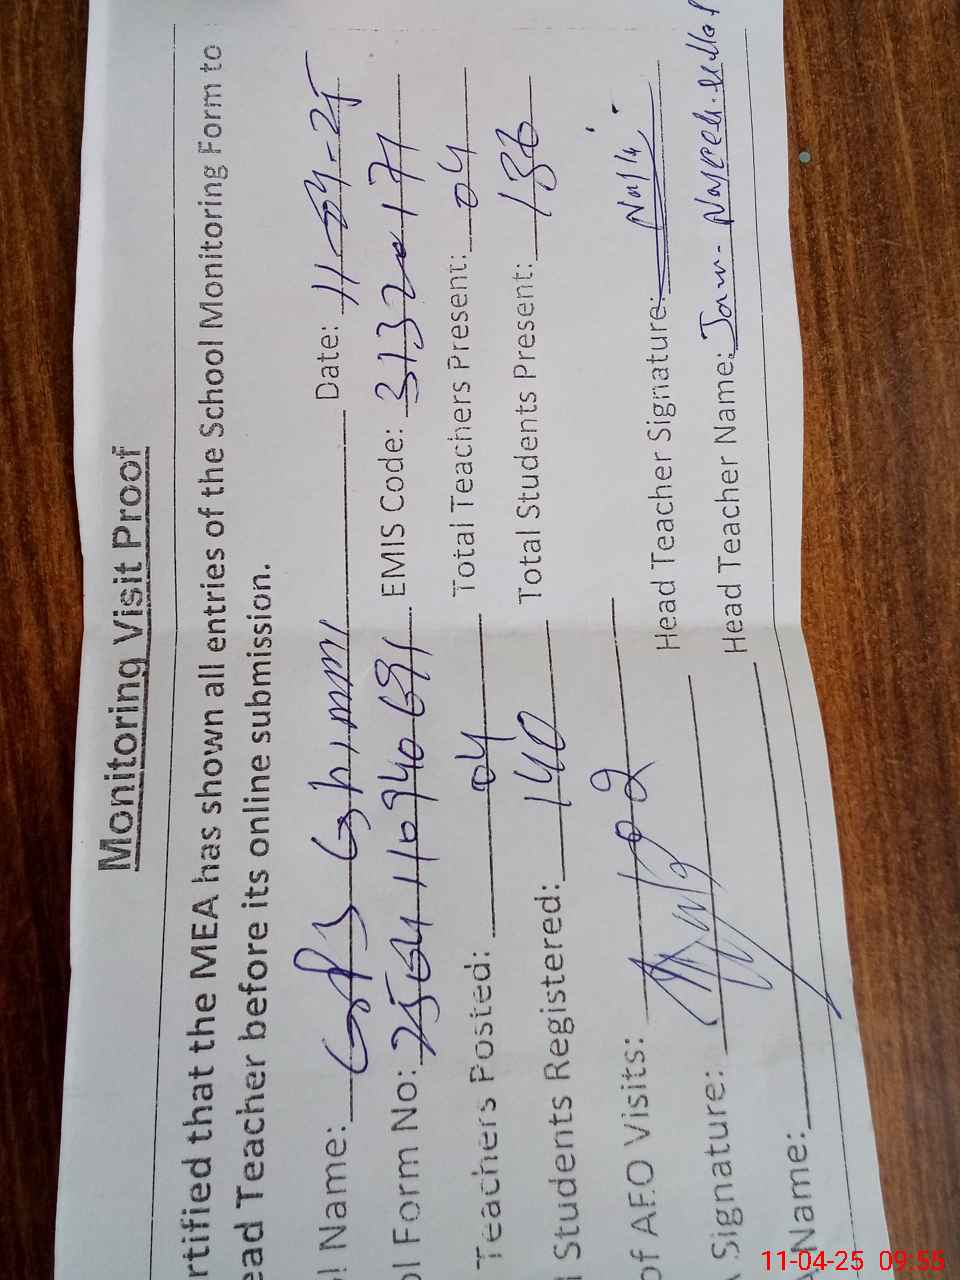 Monitoring Visit Proof
rtified that the MEA has shown all entries of the School Monitoring Form to
ead Teacher before its online submission.
ol Name: GPS Date: 11-04-25
ol Form No: EMIS Code: 31320171
Teachers Posted: 04 Total Teachers Present: 04
l Students Registered: 140 Total Students Present: 136
of AEO Visits: 02
Signature: Head Teacher Signature:
Name: Head Teacher Name: Jam
11-04-25 09:55